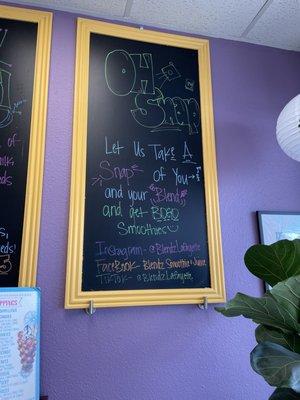 OH
Snap
Let Us Take A
Snap of You
and your "Blend"
and get BOGO
Smoothies
Instagram - @BlendzLafayette
FaceBook - Blendz Smoothie + Juice
TikTok - @BlendzLafayette
of